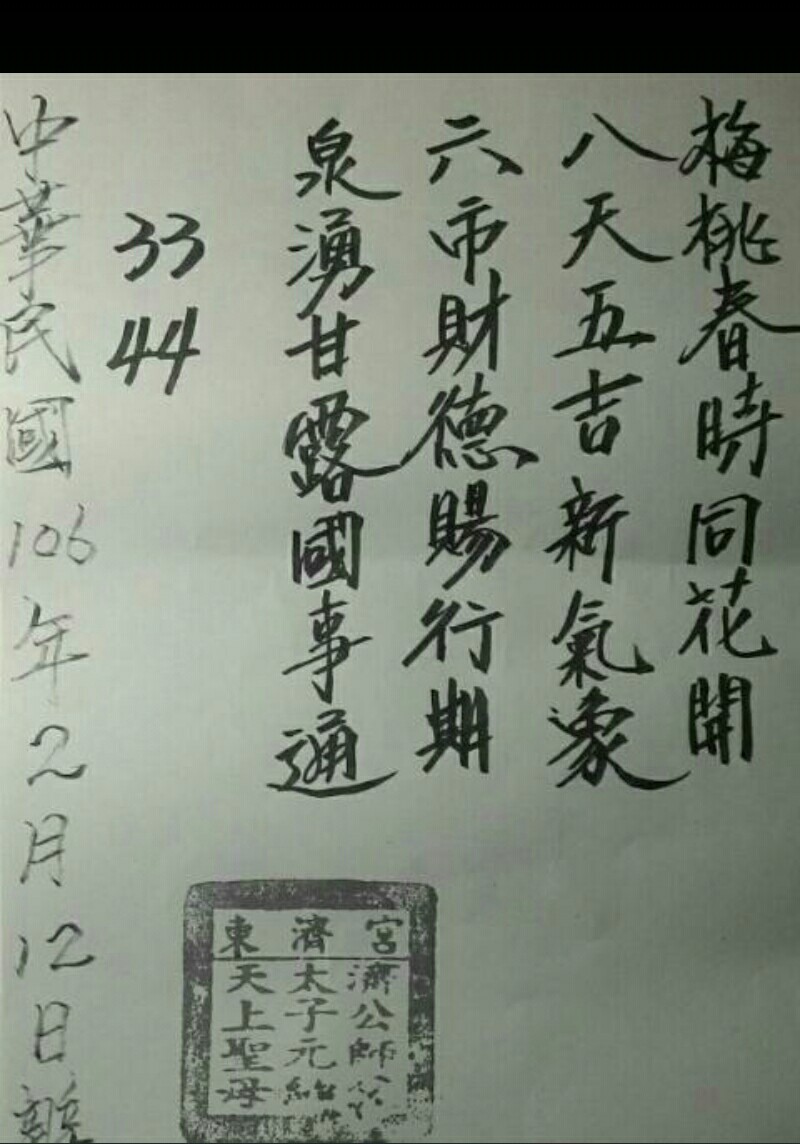 梅桃春時同花開
八天五吉新氣象
六市財德賜行期
泉湧甘露國事通
33
44
中華民國106年2月12日
東濟宮
濟公師
太子元
天上聖母